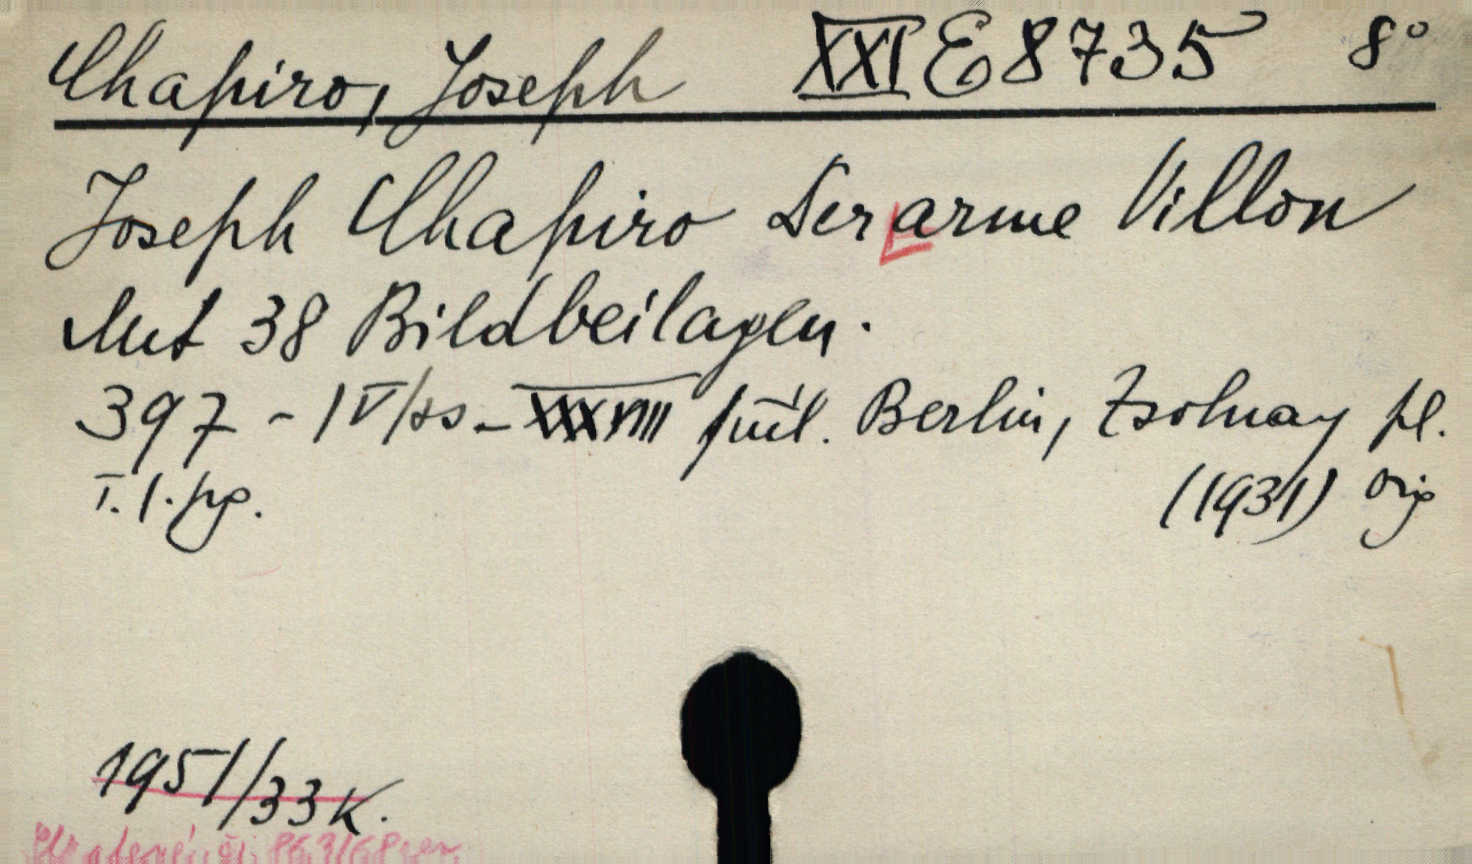 Chapiro, Joseph XXI E 8735 8°
Joseph Chapiro Der arme Villon
Mit 38 Bildbeilagen.
397 - IV/ss - XXXVIII Berlin, Zsolnay
T. 1. pg. (1931) orig
1951/33 K.